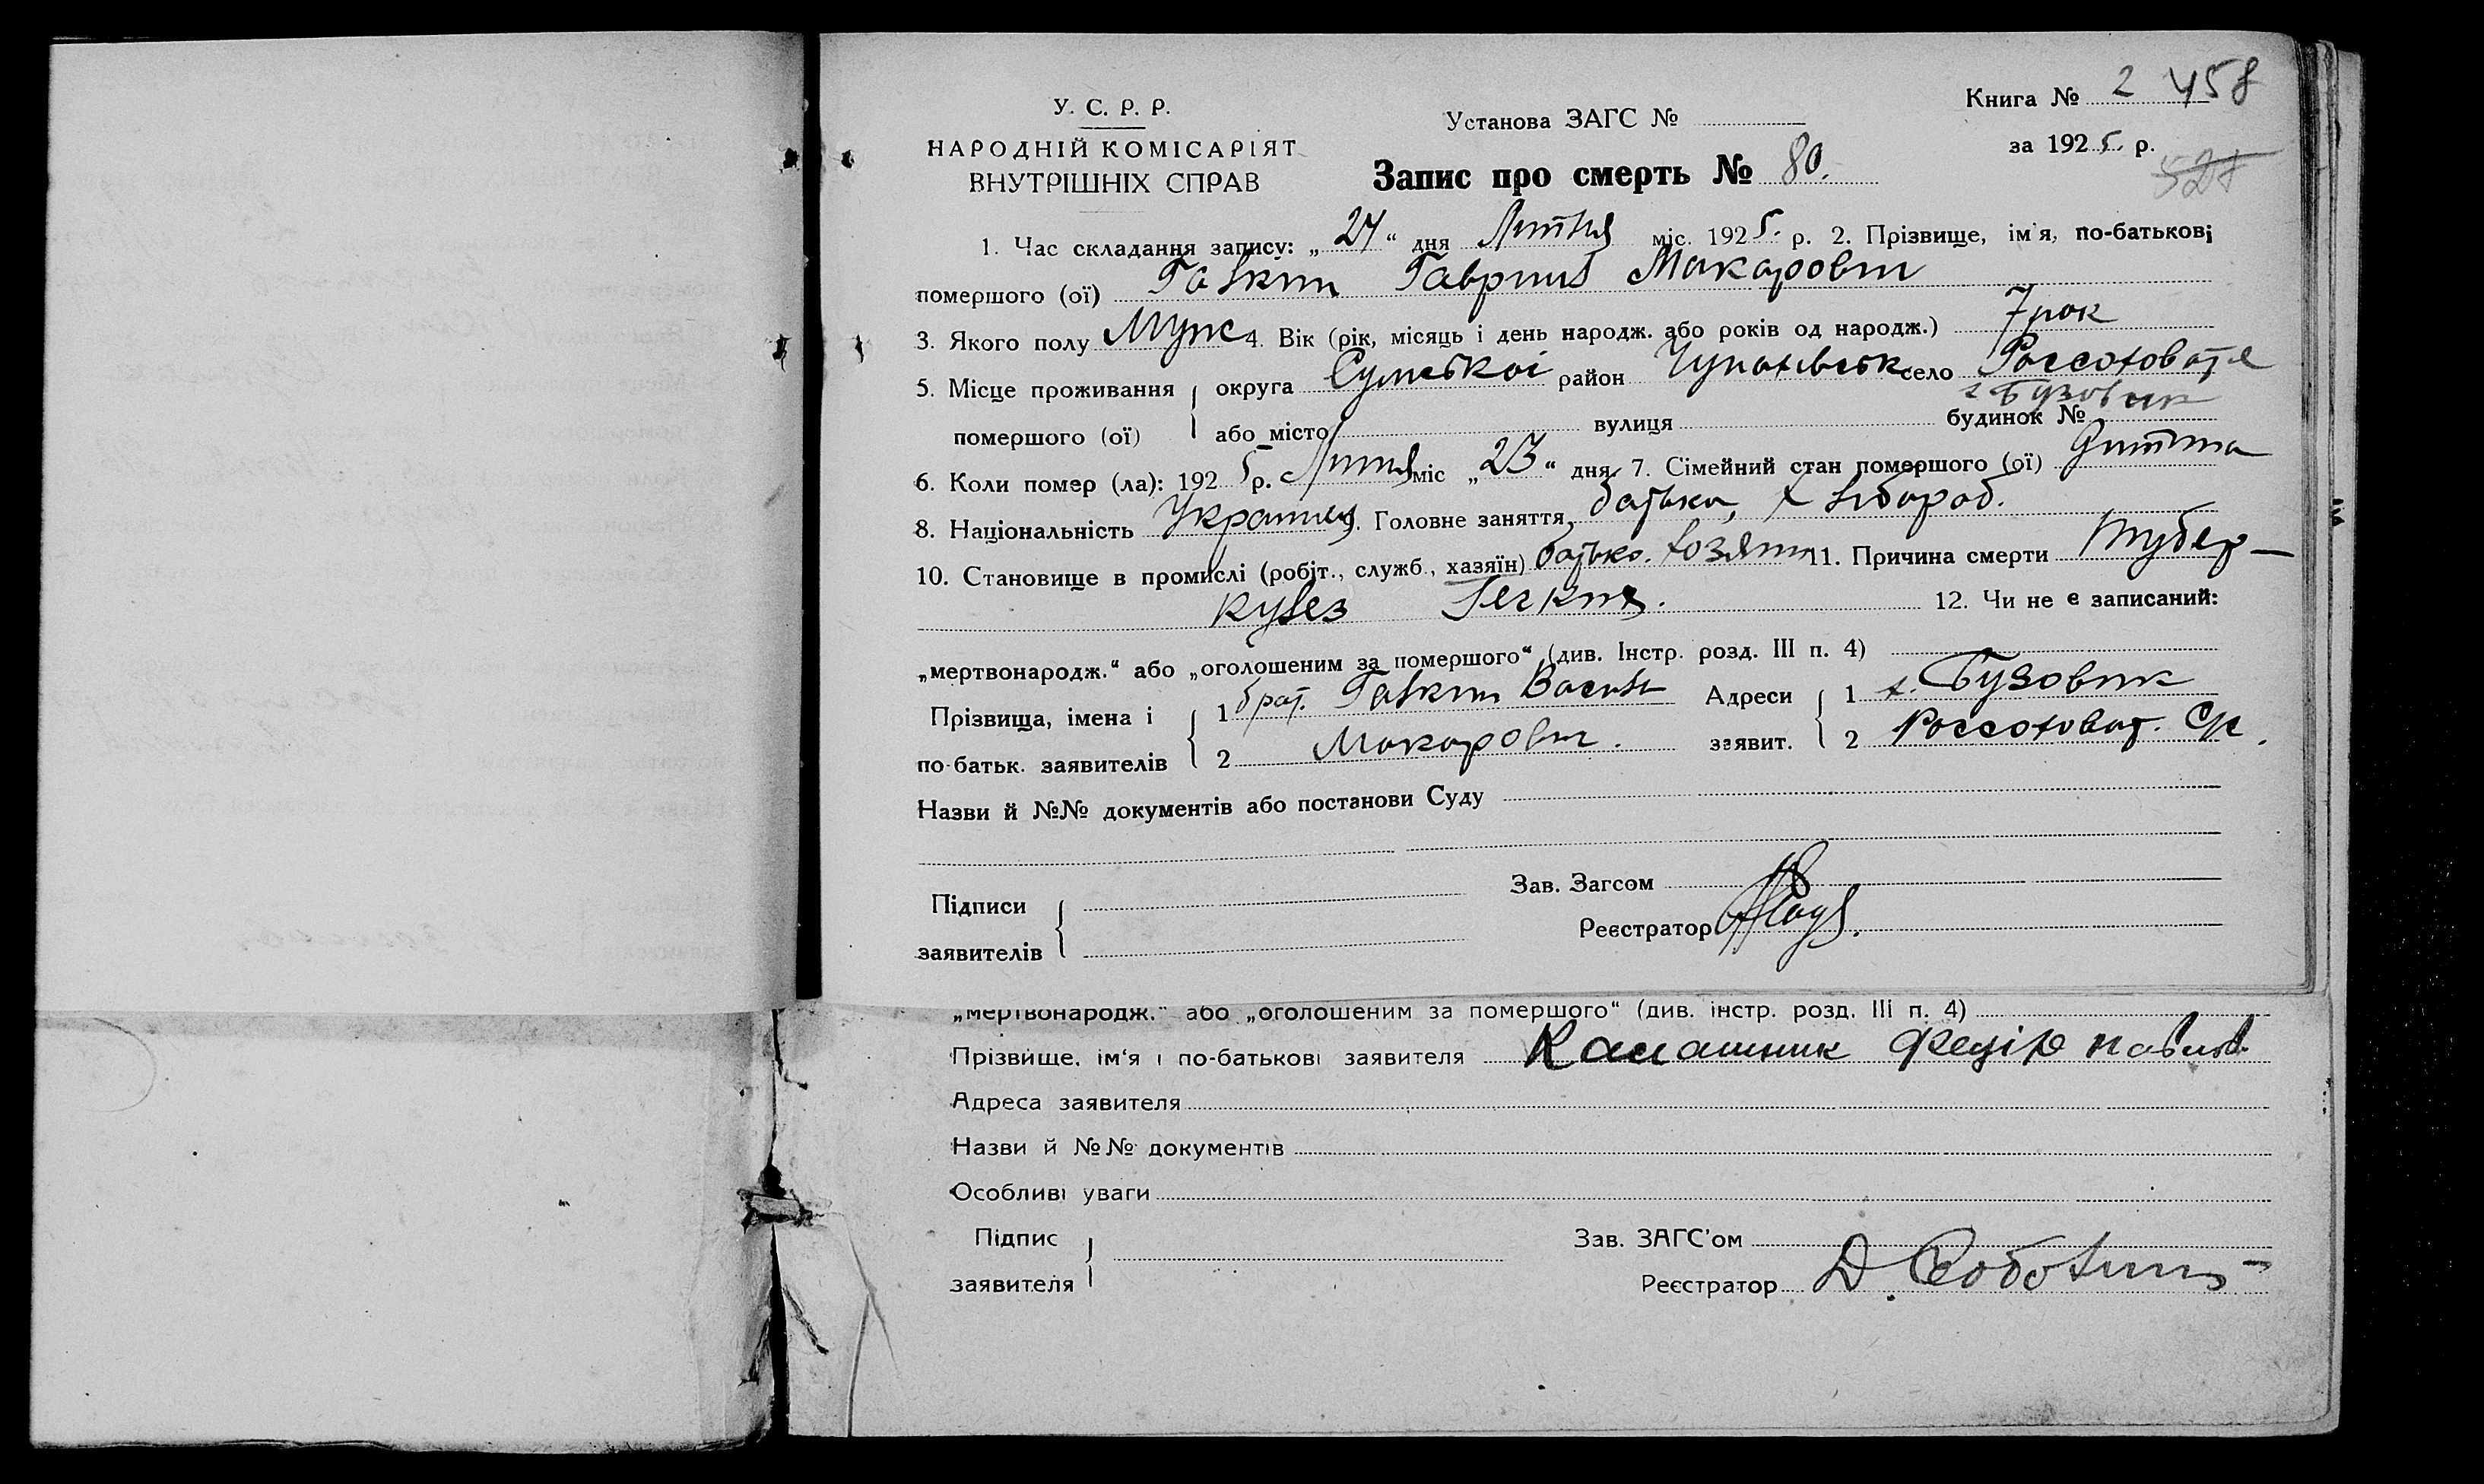 Книга № 2 458
У. С. Р. Р.
Установа ЗАГС №
за 1925 р.
НАРОДНІЙ КОМІСАРІЯТ
ВНУТРІШНІХ СПРАВ
Запис про смерть № 80.
527
1. Час складання запису: „24“ дня Липня міс. 1925. р. 2. Прізвище, ім'я, по-батькові
помершого (ої) Галкин Гаврпил Макарович
3. Якого полу Муж 4. Вік (рік, місяць і день народж. або років од народж.) 7 рок
5. Місце проживання округа Сумської район село Россоховатя
х Бузовик
помершого (ої) або місто вулиця будинок №
6. Коли помер (ла): 1925 р. Липня міс „23“ дня 7. Сімейний стан помершого (ої) Дитина
8. Національність Украинец 9. Головне заняття батька, хлібороб.
10. Становище в промислі (робіт., служб., хазяїн) батько. хозяин 11. Причина смерти Тубер-
кулез Легких. 12. Чи не є записаний:
„мертвонародж.“ або „оголошеним за помершого“ (див. Інстр. розд. III п. 4)
Прізвища, імена і 1 брат. Галкин Василь Адреси 1 х. Бузовик
по-батьк. заявителів 2 Макарович. заявит. 2 Россоховат. С/с.
Назви й №№ документів або постанови Суду
Зав. Загсом
Підписи
Реєстратор
заявителів
„мертвонародж.“ або „оголошеним за помершого“ (див. інстр. розд. III п. 4)
Прізвище, ім‘я і по-батькові заявителя Калашник Федір Павлов.
Адреса заявителя
Назви й №№ документів
Особливі уваги
Підпис
Зав. ЗАГС'ом
заявителя
Реєстратор Д.